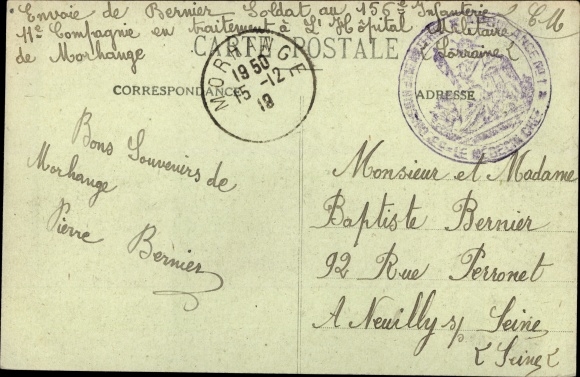 Envoie de Bernier Soldat au 156e Infanterie
11e Compagnie en traitement à L'Hôpital Militaire
de Morhange (Lorraine)
CARTE POSTALE
MORHANGE
19 50
15 -12
19
CORRESPONDANCE
ADRESSE
Bons Souvenirs de
Morhange
Pierre Bernier
Monsieur et Madame
Baptiste Bernier
92 Rue Perronet
A Neuilly s/ Seine
(Seine)